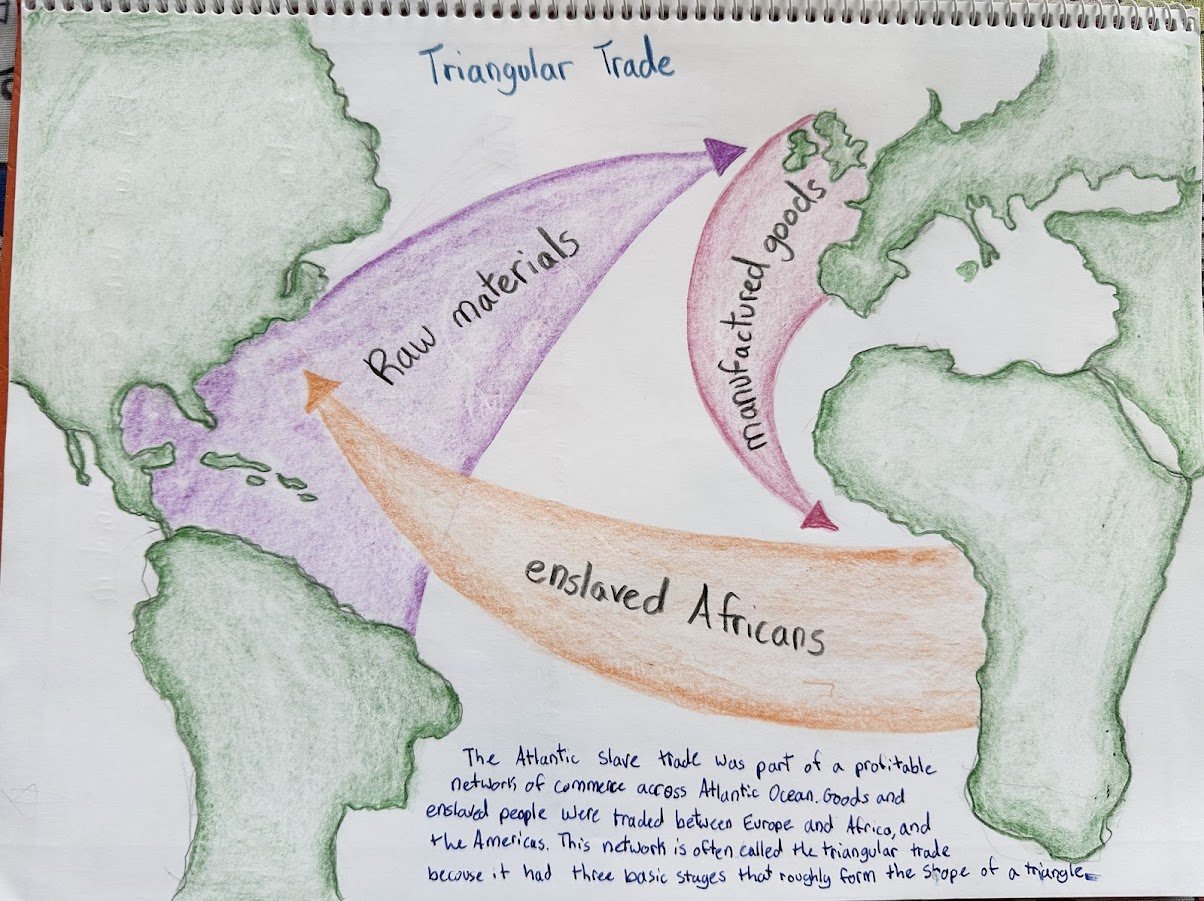 Triangular Trade
Raw materials
manufactured goods
enslaved Africans
The Atlantic slave trade was part of a profitable
network of commerce across Atlantic Ocean. Goods and
enslaved people were traded between Europe and Africa, and
the Americas. This network is often called the triangular trade
because it had three basic stages that roughly form the shape of a triangle.